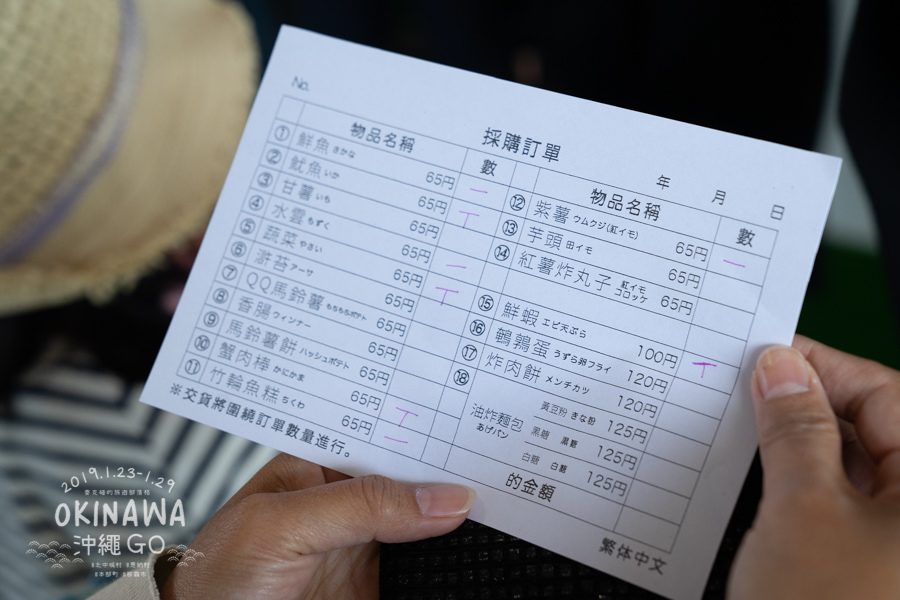 No.
採購訂單
年 月 日
物品名稱 數
① 鮮魚 さかな 65円 一
② 魷魚 いか 65円 T
③ 甘薯 いも 65円
④ 水雲 もずく 65円 一
⑤ 蔬菜 やさい 65円 T
⑥ 滸苔 アーサ 65円
⑦ QQ馬鈴薯 もちもちポテト 65円
⑧ 香腸 ウィンナー 65円
⑨ 馬鈴薯餅 ハッシュポテト 65円
⑩ 蟹肉棒 かにかま 65円 T
⑪ 竹輪魚糕 ちくわ 65円 一
※交貨將圍繞訂單數量進行。
物品名稱 數
⑫ 紫薯 ウムクジ(紅イモ) 65円 一
⑬ 芋頭 田イモ 65円
⑭ 紅薯炸丸子 紅イモコロッケ 65円
⑮ 鮮蝦 エビ天ぷら 100円 T
⑯ 鵪鶉蛋 うずら卵フライ 120円
⑰ 炸肉餅 メンチカツ 120円
⑱ 油炸麵包 あげパン
黃豆粉 きな粉 125円
黑糖 黒糖 125円
白糖 白糖 125円
的金額
繁体中文
2019.1.23-1.29
OKINAWA
沖繩GO